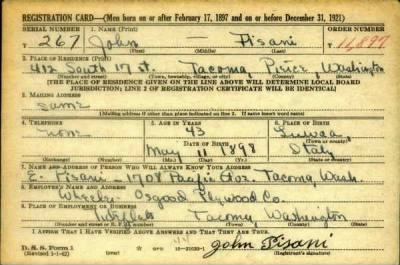 REGISTRATION CARD—(Men born on or after February 17, 1897 and on or before December 31, 1921)
SERIAL NUMBER 1. NAME (Print) ORDER NUMBER
T 267 John — Pisani T 11,897
(First) (Middle) (Last)
2. PLACE OF RESIDENCE (Print)
412 South 17 st. Tacoma, Pierce, Washington
(Number and street) (Town, township, village, or city) (County) (State)
[THE PLACE OF RESIDENCE GIVEN ON THE LINE ABOVE WILL DETERMINE LOCAL BOARD
JURISDICTION; LINE 2 OF REGISTRATION CERTIFICATE WILL BE IDENTICAL]
3. MAILING ADDRESS
Same
[Mailing address if other than place indicated on line 2. If same insert word same]
4. TELEPHONE 5. AGE IN YEARS 6. PLACE OF BIRTH
none 43
DATE OF BIRTH (Town or county)
May 11 1898 Italy
(Exchange) (Number) (Mo.) (Day) (Yr.) (State or country)
7. NAME AND ADDRESS OF PERSON WHO WILL ALWAYS KNOW YOUR ADDRESS
E. Pisani - 1708 Pacific Tacoma, Wash.
8. EMPLOYER'S NAME AND ADDRESS
Wheeler-Osgood Plywood Co.
9. PLACE OF EMPLOYMENT OR BUSINESS
Tacoma, Washington
(Number and street or R. F. D. number) (Town) (County) (State)
I AFFIRM THAT I HAVE VERIFIED ABOVE ANSWERS AND THAT THEY ARE TRUE.
D. S. S. Form 1
(Revised 1-1-42) (over) 16—21630-1 John Pisani